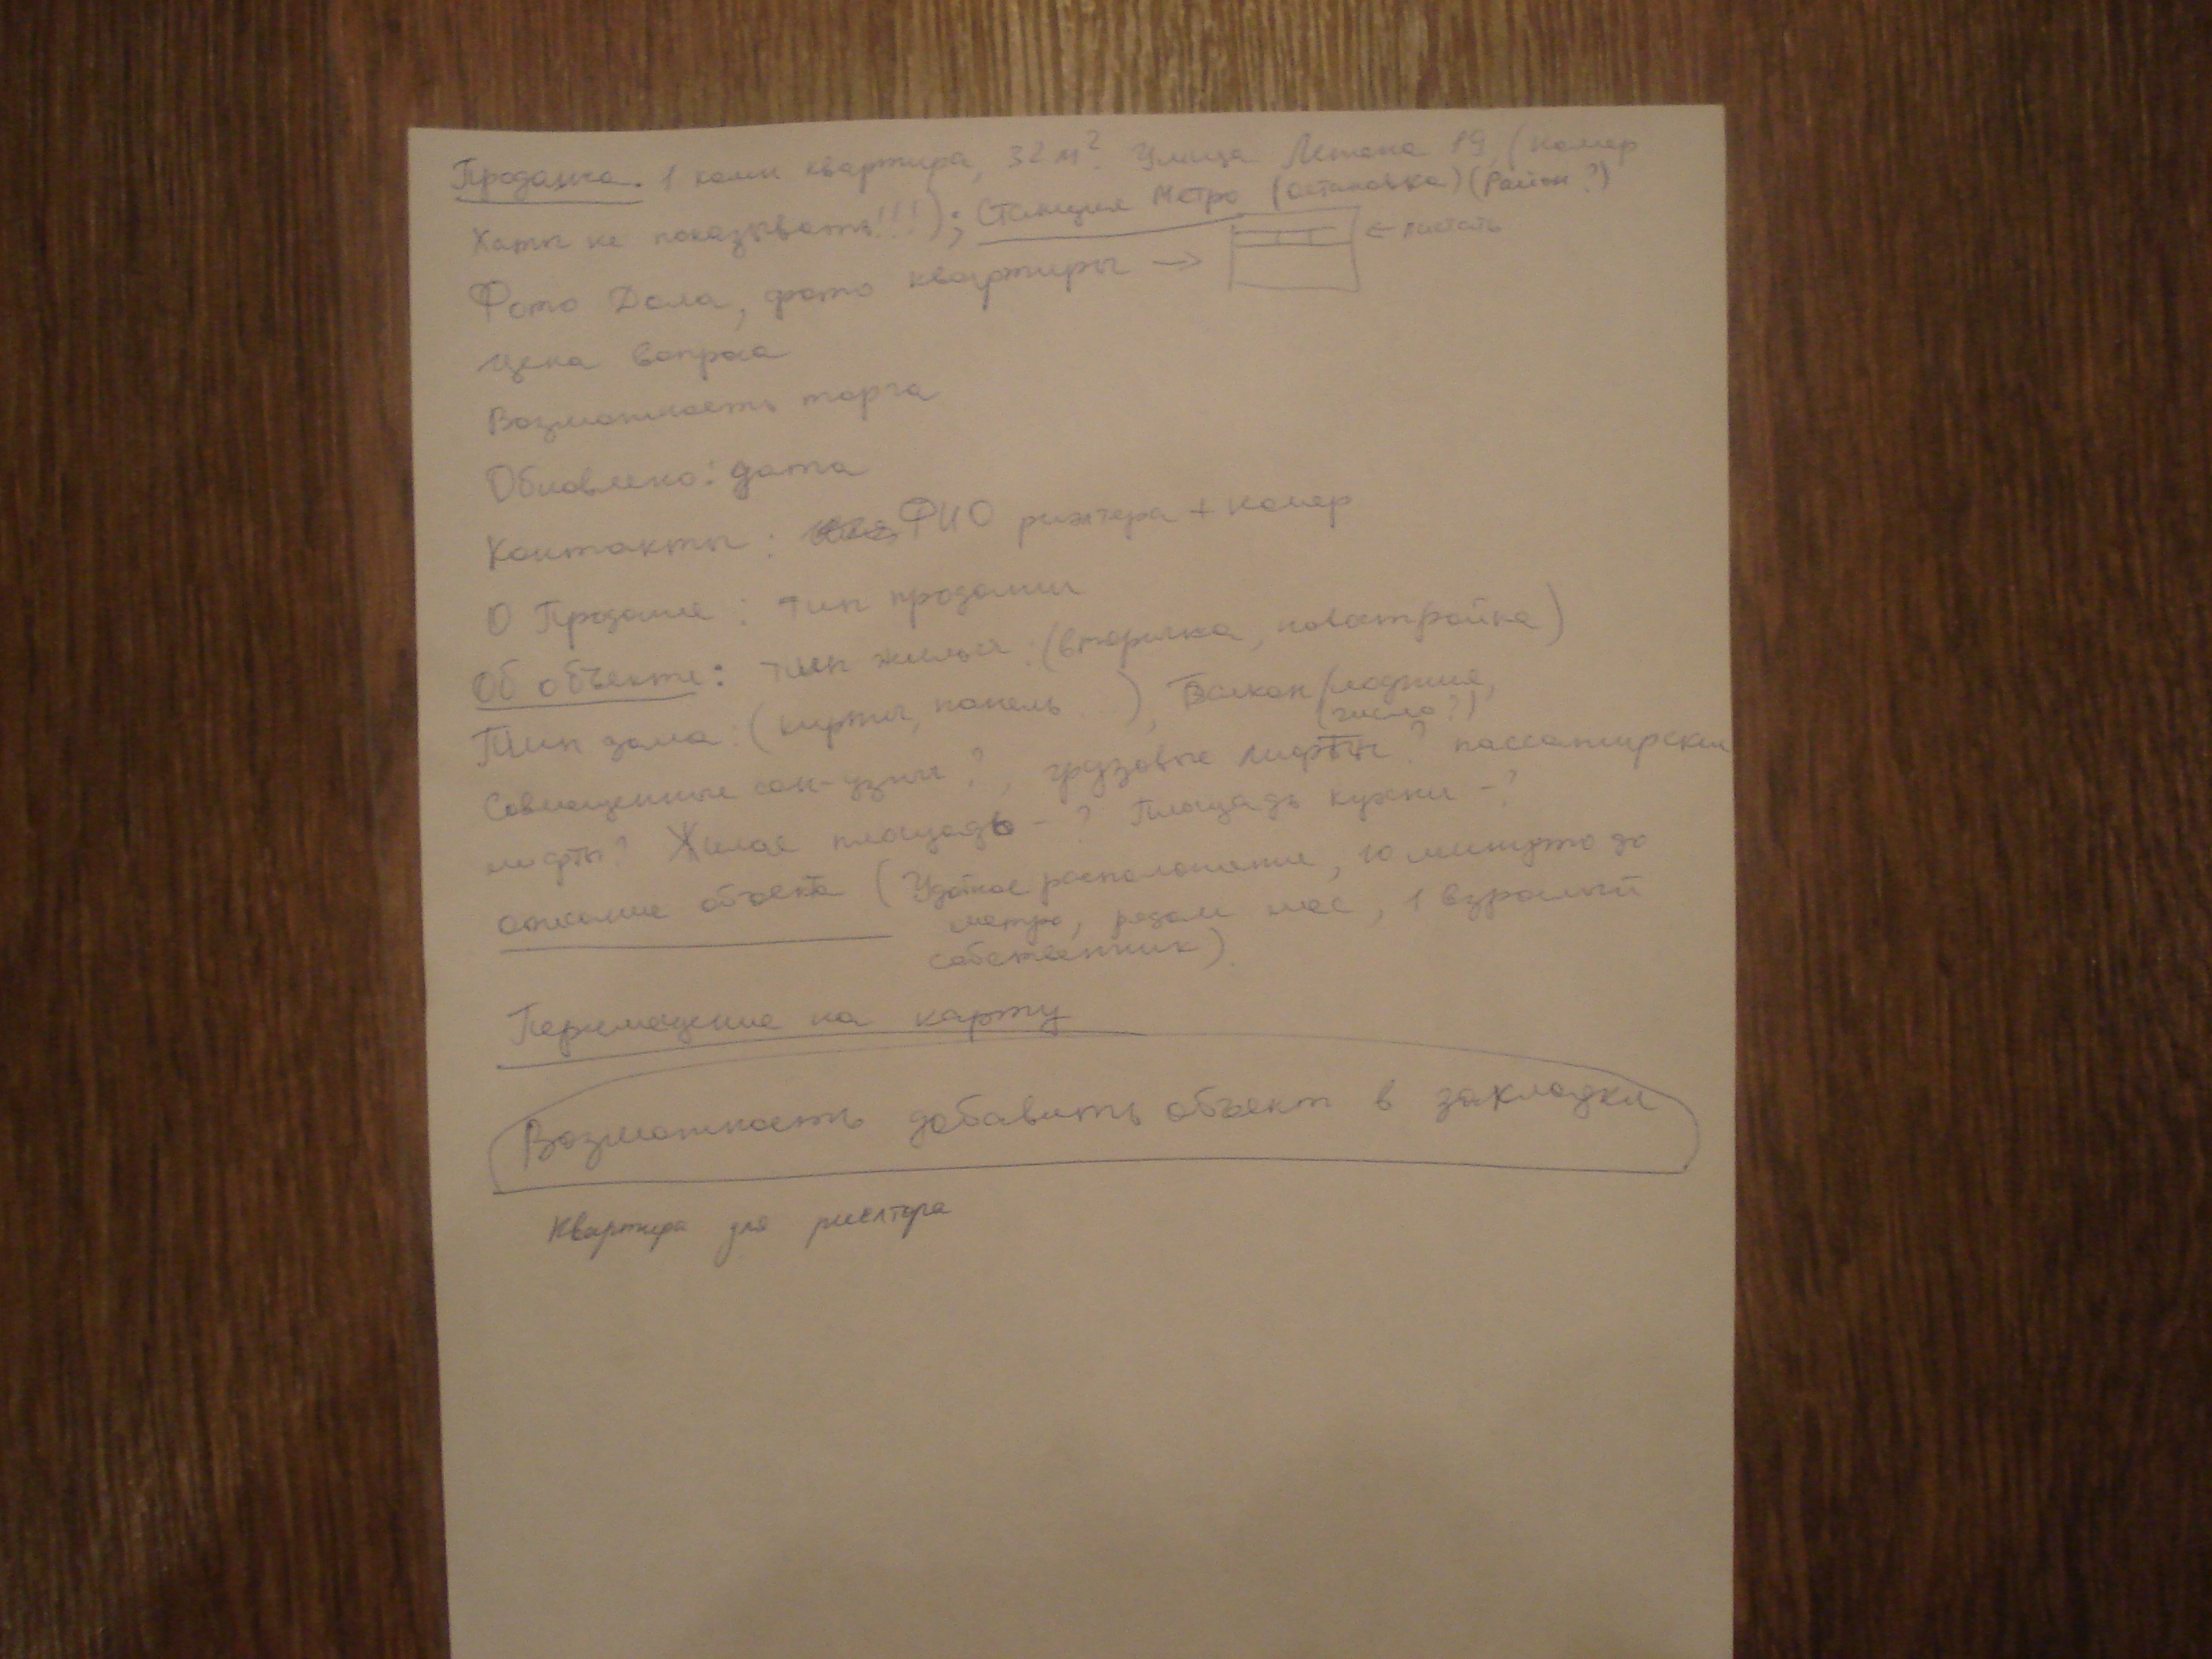 Продажа. 1 комн квартира, 32 м². Улица Ленина 19, (номер
Хаты не показывать!!!); Станция Метро (остановка) (Район?)
Фото Дома, фото квартиры → ← листать
Цена вопроса
Возможность торга
Обновлено: дата
Контакты: ФИО риэлтера + номер
О Продаже: тип продажи
Об объекте: тип жилья: (вторичка, новостройка)
Тип дома: (кирпич, панель ..), Балкон (лоджия,
(число?)
Совмещенные сан-узлы?, грузовые лифты? пассажирские
лифты? Жилая площадь - ? Площадь кухни - ?
описание объекта (Удобное расположение, 10 минут до
метро, рядом лес, 1 взрослый
собственник).
Перемещение на карту
Возможность добавить объект в закладки
Квартира для риелтора